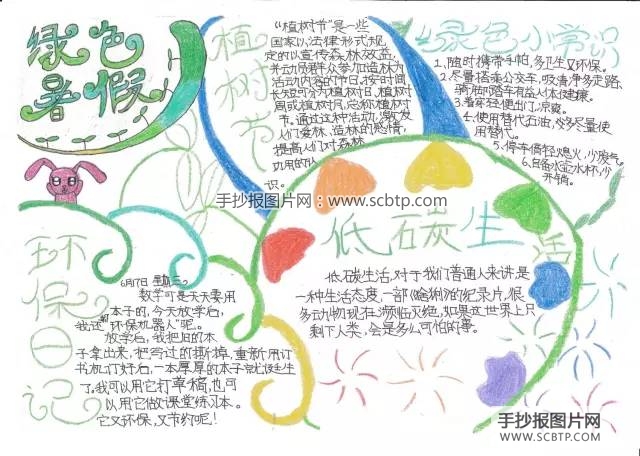 绿色
暑假
植树节
"植树节"是一些
国家以法律形式规
定的以宣传森林效益,
并动员群众参加造林为
活动内容的节日,按时间
长短可分为植树日,植树
周或植树月,总称植树
节。通过这种活动,激发
人们爱林、造林的热情,
提高人们对森林
功用的认
识。
绿色小常识
1、随时携带手帕,多卫生又环保。
2、尽量搭乘公交车,吸清净多走路,
骑脚踏车有益人体健康。
3、着车轻便出门,凉爽。
4、使用替代石油,令多尽量使
用替代。
5、停车俩轻熄火,少废气。
6、自备水壶水杯,少
开销。
手抄报图片网:www.scbtp.com
低碳生活
低碳生活,对于我们普通人来讲是
一种生活态度,一部
的纪录片,很
多动物现在濒临灭绝,如果这世界上只
剩下人类,会是多么可怕的事。
环保日记
6月17日 星期三。
数学可是天天要用
本子的,今天放学后,
我还"环保机器人"呢。
放学后,我把旧的本
子拿出来,把写过的撕掉,重新用订
书机订好后,一本厚厚的本子就诞生
了,我可以用它打草稿,也可
以用它做课堂练习本。
它又环保,又节约呢!
手抄报图片网
WWW.SCBTP.COM